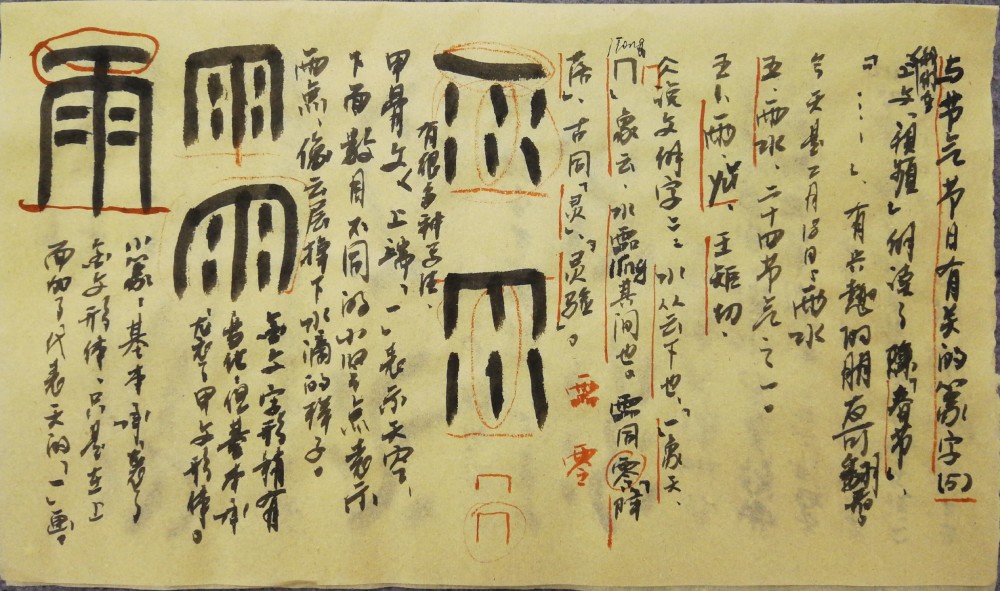 与节气节日有关的篆字(5)
上文「预题」的

「……」,有兴趣的朋友可翻看。
今天是二月18日:雨水
五、雨水,二十四节气之一。
王矩切,
《说文解字》:水从云下也,「一」象天,
jiong
「冂」象云,水霝
líng
其间也。霝同「零」「降
落」,古同「灵」,「灵验」。
霝 零
冂
冂
有很多种写法,
甲骨文,上端「一」表示天空,
下面数目不同的小竖点表示
雨点,像云层掉下水滴的样子。
雨
雨
金文字形稍有
变化,但基本承
袭了甲文形体。
小篆,基本承袭了
金文形体,只是在上
面加了代表天的「一」画。
雨